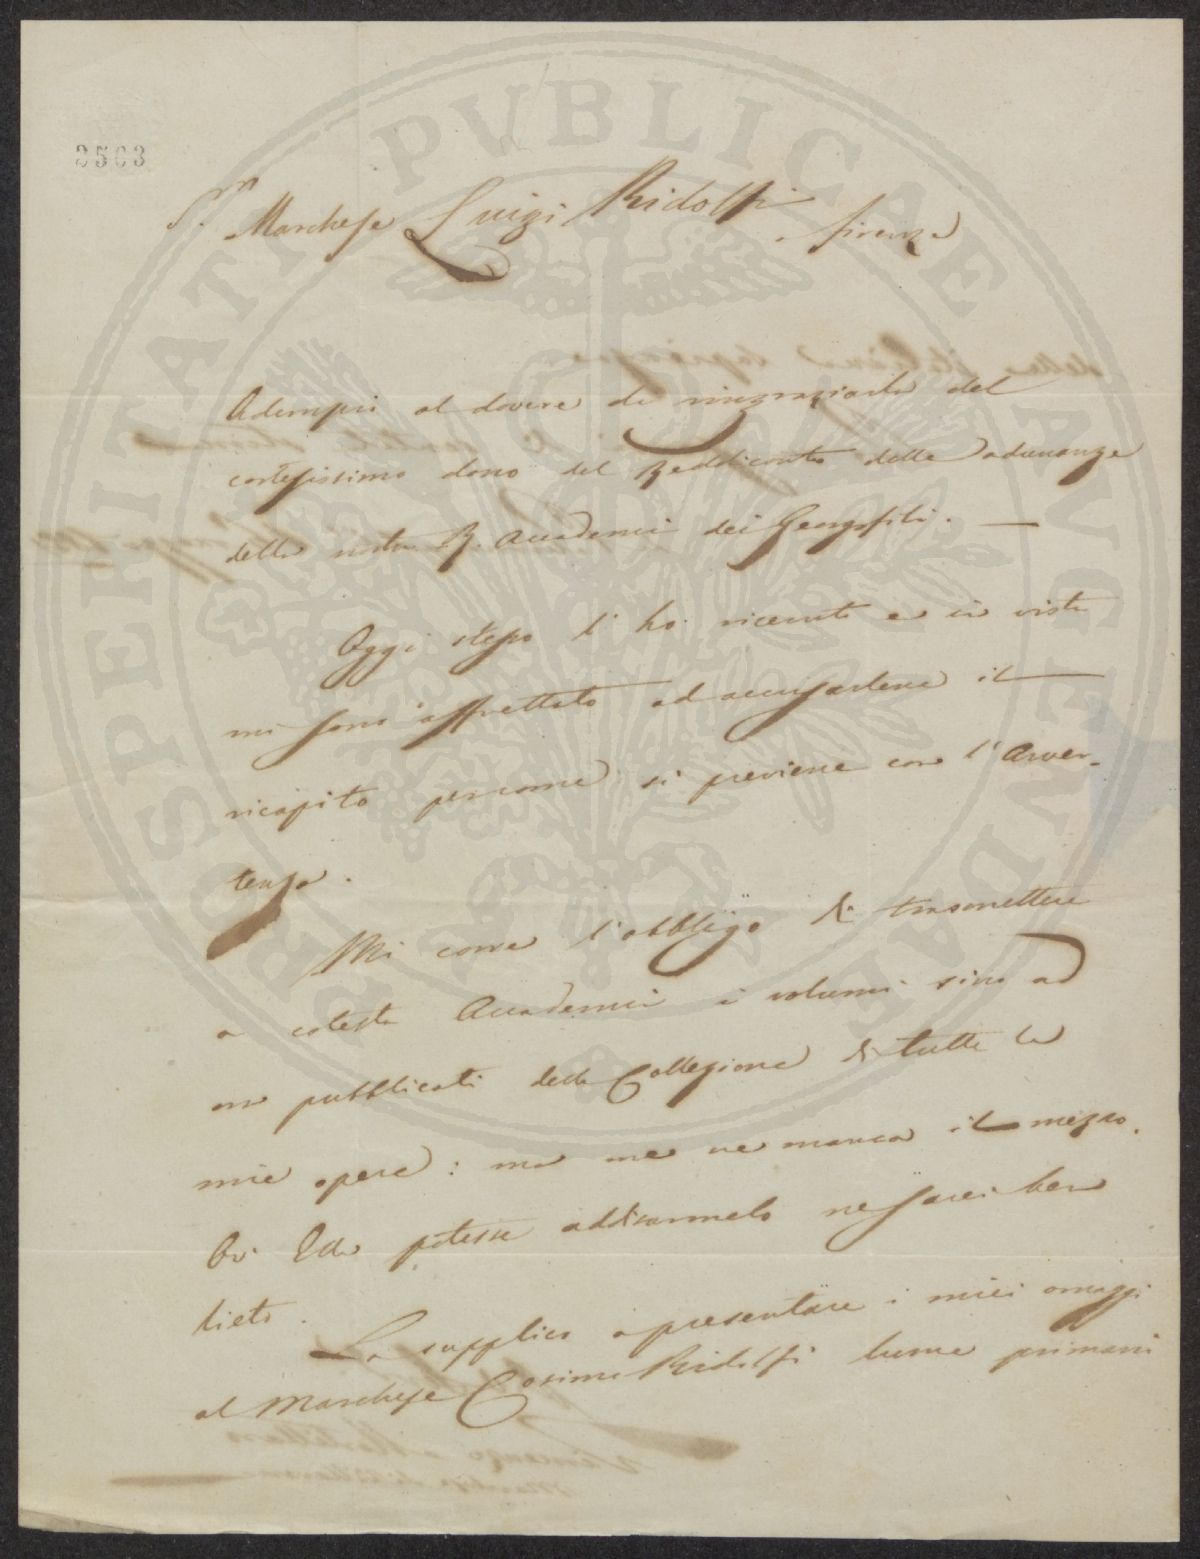 PROSPERITATI PUBLICAE AUGENDAE
2503
S.r Marchese Luigi Ridolfi, Firenze
Adempio al dovere di ringraziarla del
cortesissimo dono del Rendiconto delle adunanze
della nostra R. Accademia dei Georgofili. —
Oggi stesso l'ho ricevuto e in vista
mi sono affrettato ad accusarlene il
ricapito percome si previene con l'Avver-
tenza.
Mi corre l'obbligo di trasmettere
a cotesta Accademia i volumi sino ad
ora pubblicati della Collezione di tutte le
mie opere: ma me ne manca il mezzo.
Se Ella potesse additarmelo ne sarei ben
lieto.
La supplico a presentare i miei omaggi
al Marchese Cosimo Ridolfi lume primario